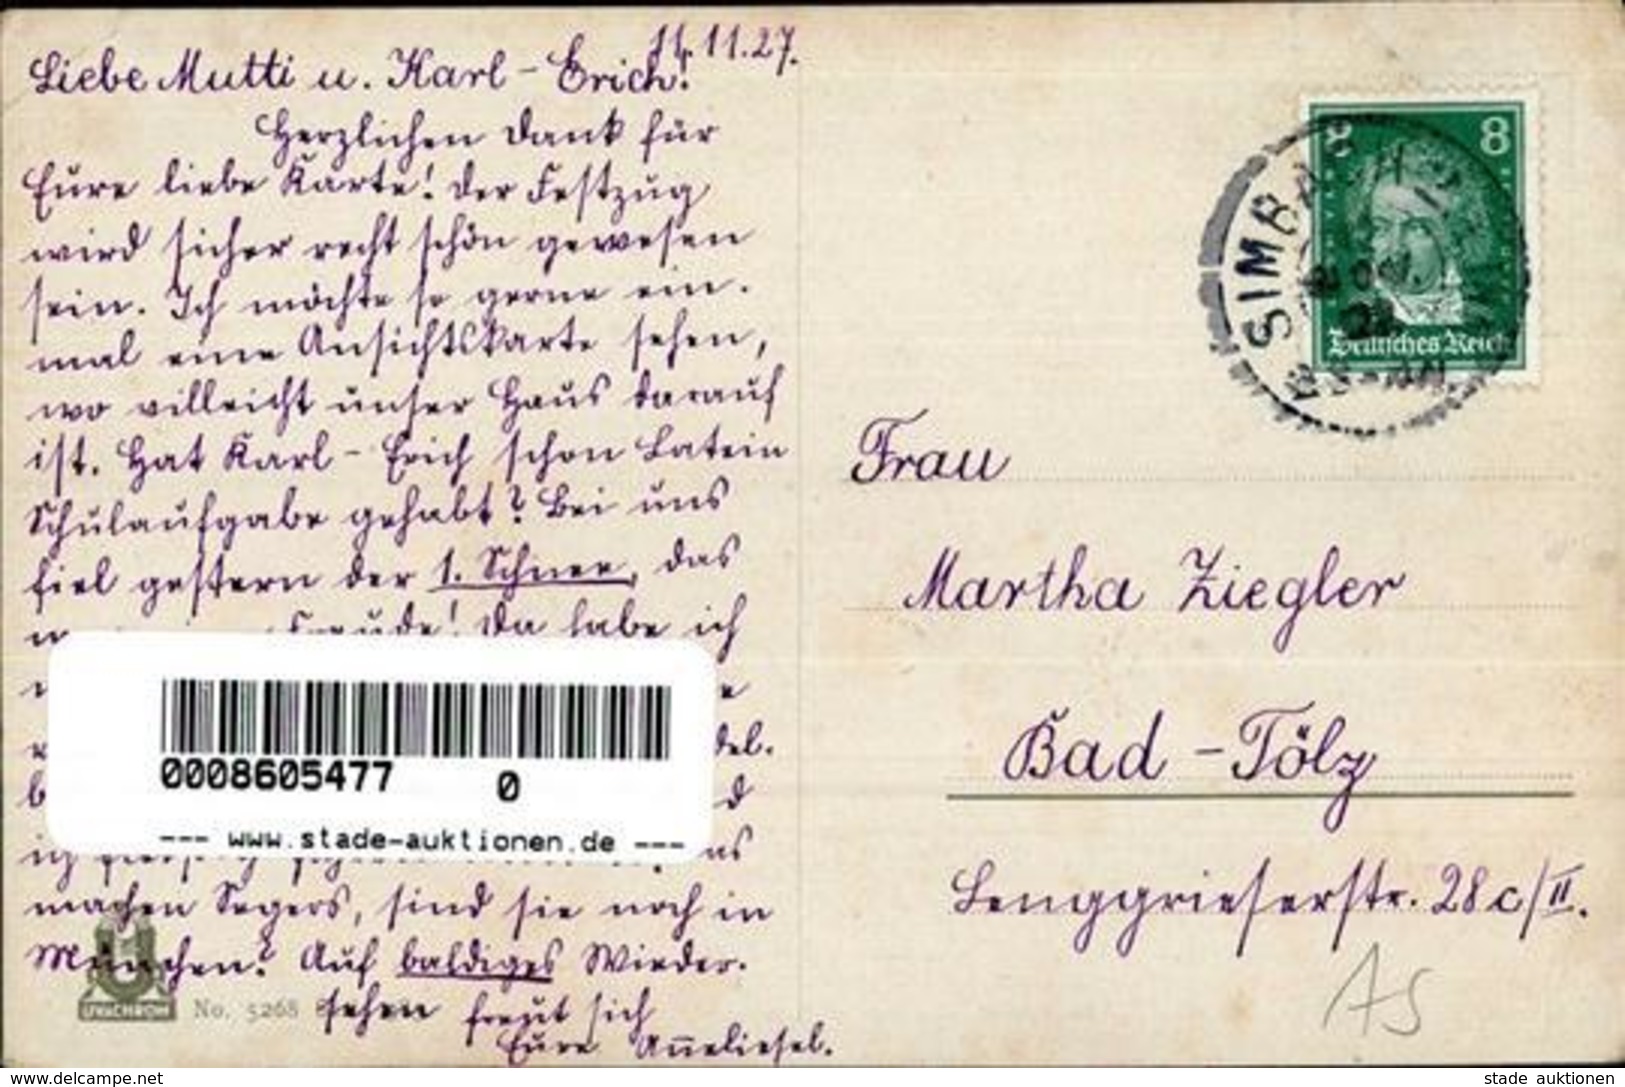 11.11.27.
Liebe Mutti u. Karl-Erich!
Herzlichen Dank für
Eure liebe Karte! Der Festzug
wird sicher recht schön gewesen
sein. Ich möchte so gerne ein-
mal eine Ansichtskarte sehen,
wo villeicht unser Haus darauf
ist. Hat Karl-Erich schon Latein
Schulaufgabe gehabt? Bei uns
fiel gestern der 1. Schnee, das
Freude! Da habe ich
machen Segers, sind sie noch in
München? Auf baldiges Wieder-
sehen freut sich
Eure Anneliesel.
UVACHROM No. 5268
0008605477 0
--- www.stade-auktionen.de ---
8 8
Deutsches Reich
SIMBACH
Frau
Martha Ziegler
Bad-Tölz
Lenggrieserstr. 28 c/II.
AS
www.delcampe.net
stade auktionen